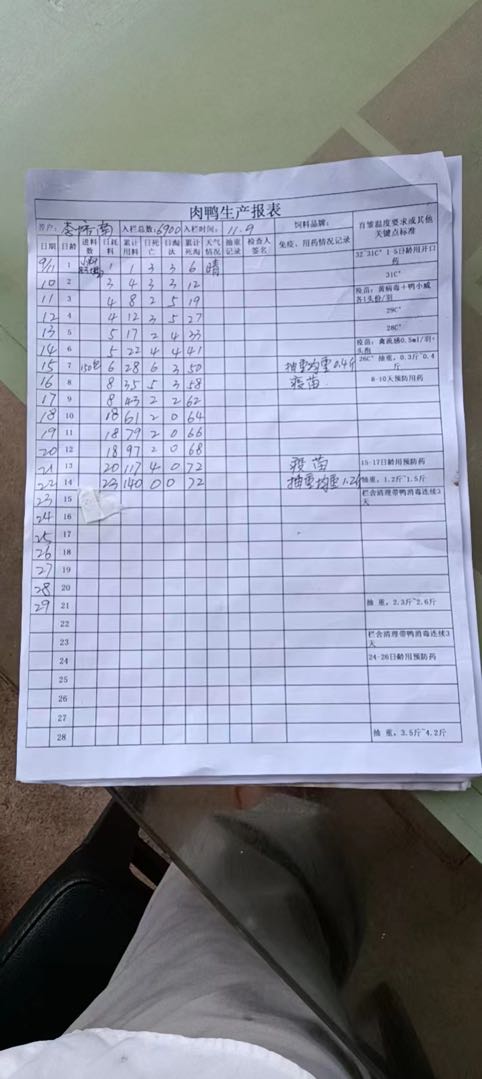 肉鸭生产报表
养户: 入栏总数:6900 入栏时间: 11.9 饲料品牌: 育雏温度要求或其他关键点标准
日期 日龄 进料数 日耗料 累计用料 日死亡 日淘汰 累计死淘 天气情况 抽重记录 检查人签名 免疫、用药情况记录
9/11 1 1 1 3 3 6 晴 32~31C° 1-5日龄用开口药
10 2 3 4 3 3 12 31C°
11 3 4 8 2 5 19 疫苗:黄病毒+鸭小威各1头份/羽
12 4 4 12 3 5 27 29C°
13 5 5 17 2 4 33 28C°
14 6 5 22 4 4 41 疫苗:禽流感0.5ml/羽+头孢
15 7 150包 6 28 6 3 50 抽重均重0.4斤 26C° 抽重,0.3斤~0.4斤
16 8 8 35 5 3 58 疫苗 8-10天预防用药
17 9 8 43 2 2 62
18 10 18 61 2 0 64
19 11 18 79 2 0 66
20 12 18 97 2 0 68
21 13 20 117 4 0 72 疫苗 15-17日龄用预防药
22 14 23 140 0 0 72 抽重均重1.2斤 抽重,1.2斤~1.5斤
23 15 栏舍清理带鸭消毒连续3天
24 16
25 17
26 18
27 19
28 20
29 21 抽 重,2.3斤~2.6斤
22
23 栏舍清理带鸭消毒连续3天
24 24-26日龄用预防药
25
26
27
28 抽 重,3.5斤~4.2斤